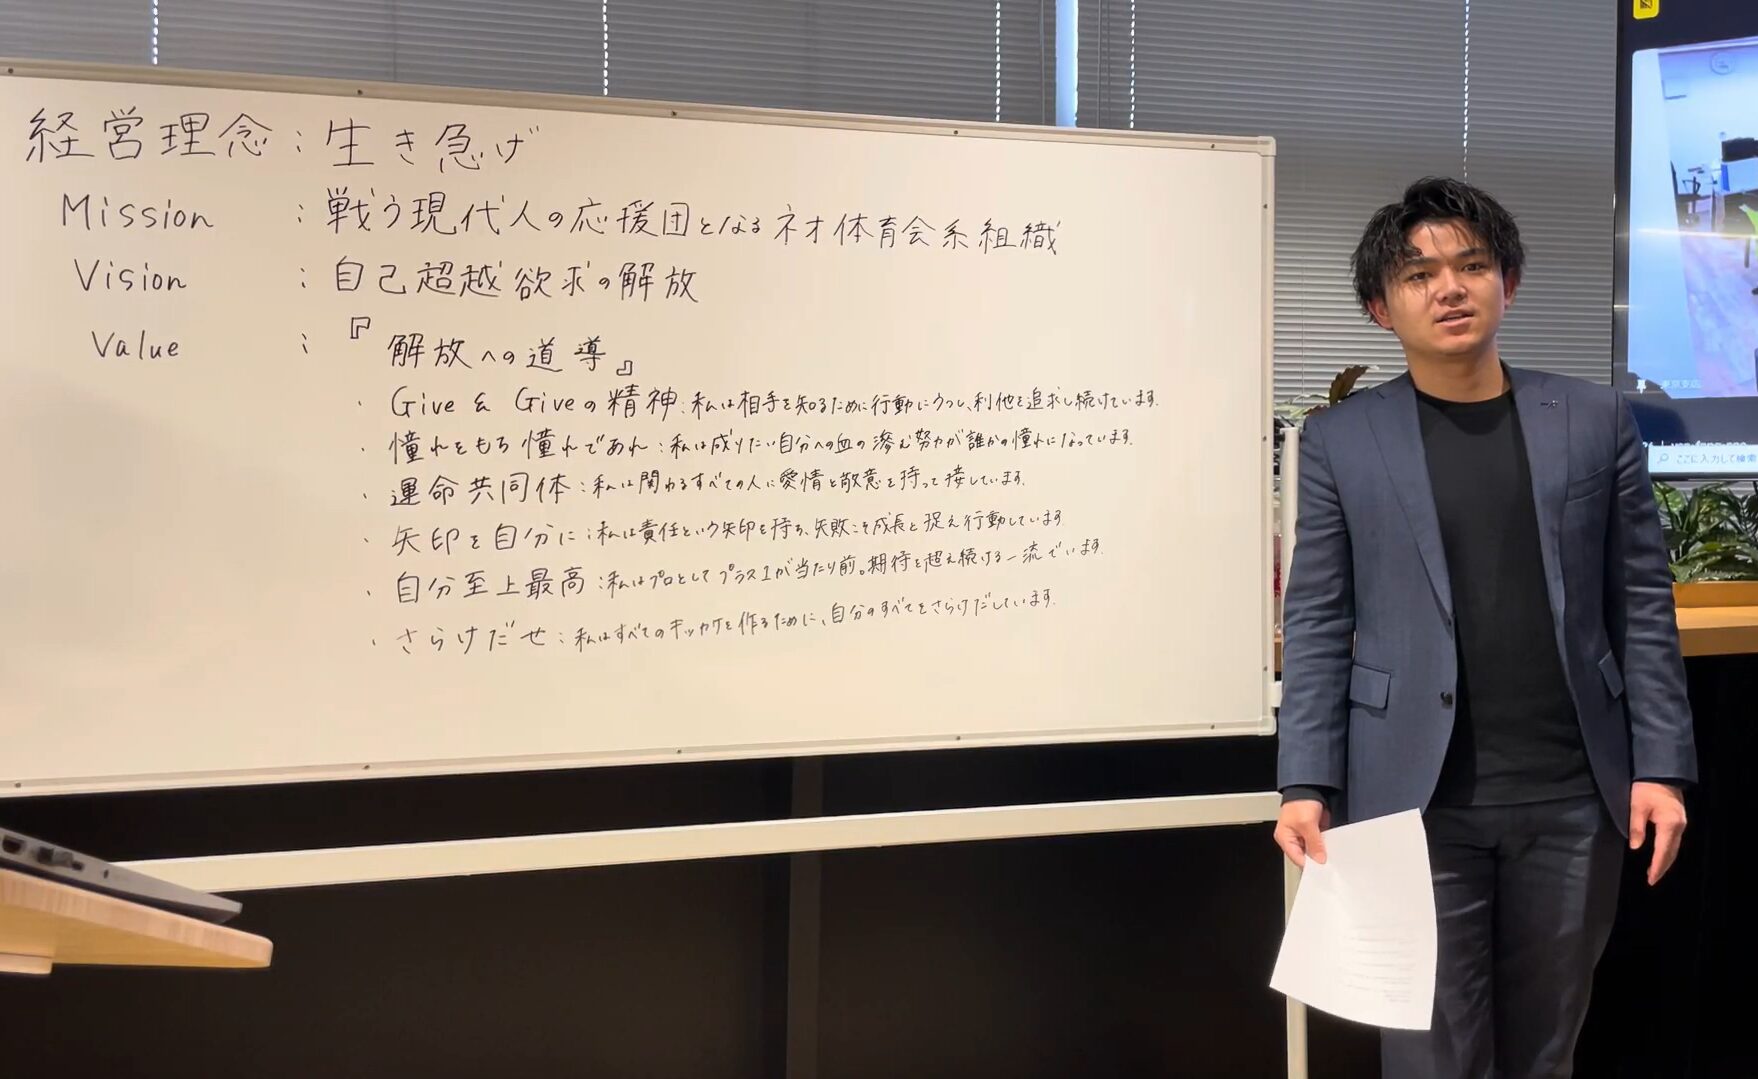 経営理念：生き急げ
Mission ：戦う現代人の応援団となるネオ体育会系組織
Vision ：自己超越欲求の解放
Value ：『解放への道導』
・Give & Giveの精神：私は相手を知るために行動にうつし、利他を追求し続けています。
・憧れをもち憧れであれ：私は成りたい自分への血の滲む努力が誰かの憧れになっています。
・運命共同体：私は関わるすべての人に愛情と敬意を持って接しています。
・矢印を自分に：私は責任という矢印を持ち、失敗こそ成長と捉え行動しています。
・自分至上最高：私はプロとしてプラス1が当たり前。期待を超え続ける一流でいます。
・さらけだせ：私はすべてのキッカケを作るために、自分のすべてをさらけだしています。
東京支店
ここに入力して検索